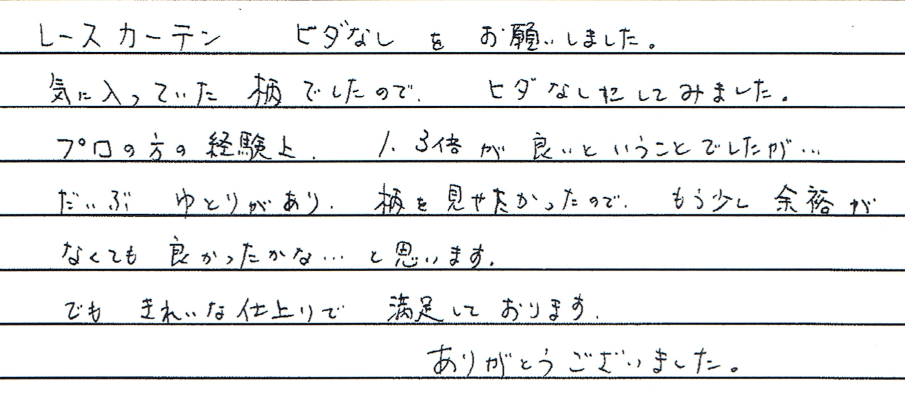 レースカーテン ヒダなし を お願いしました。
気に入っていた 柄 でしたので、 ヒダなしにしてみました。
プロの方の経験上、 1.3倍が 良いと いうことでしたが…
だいぶ ゆとりがあり、柄を見せたかったので、 もう少し 余裕が
なくても 良かったかな… と思います。
でも きれいな仕上りで 満足しております。
ありがとうございました。